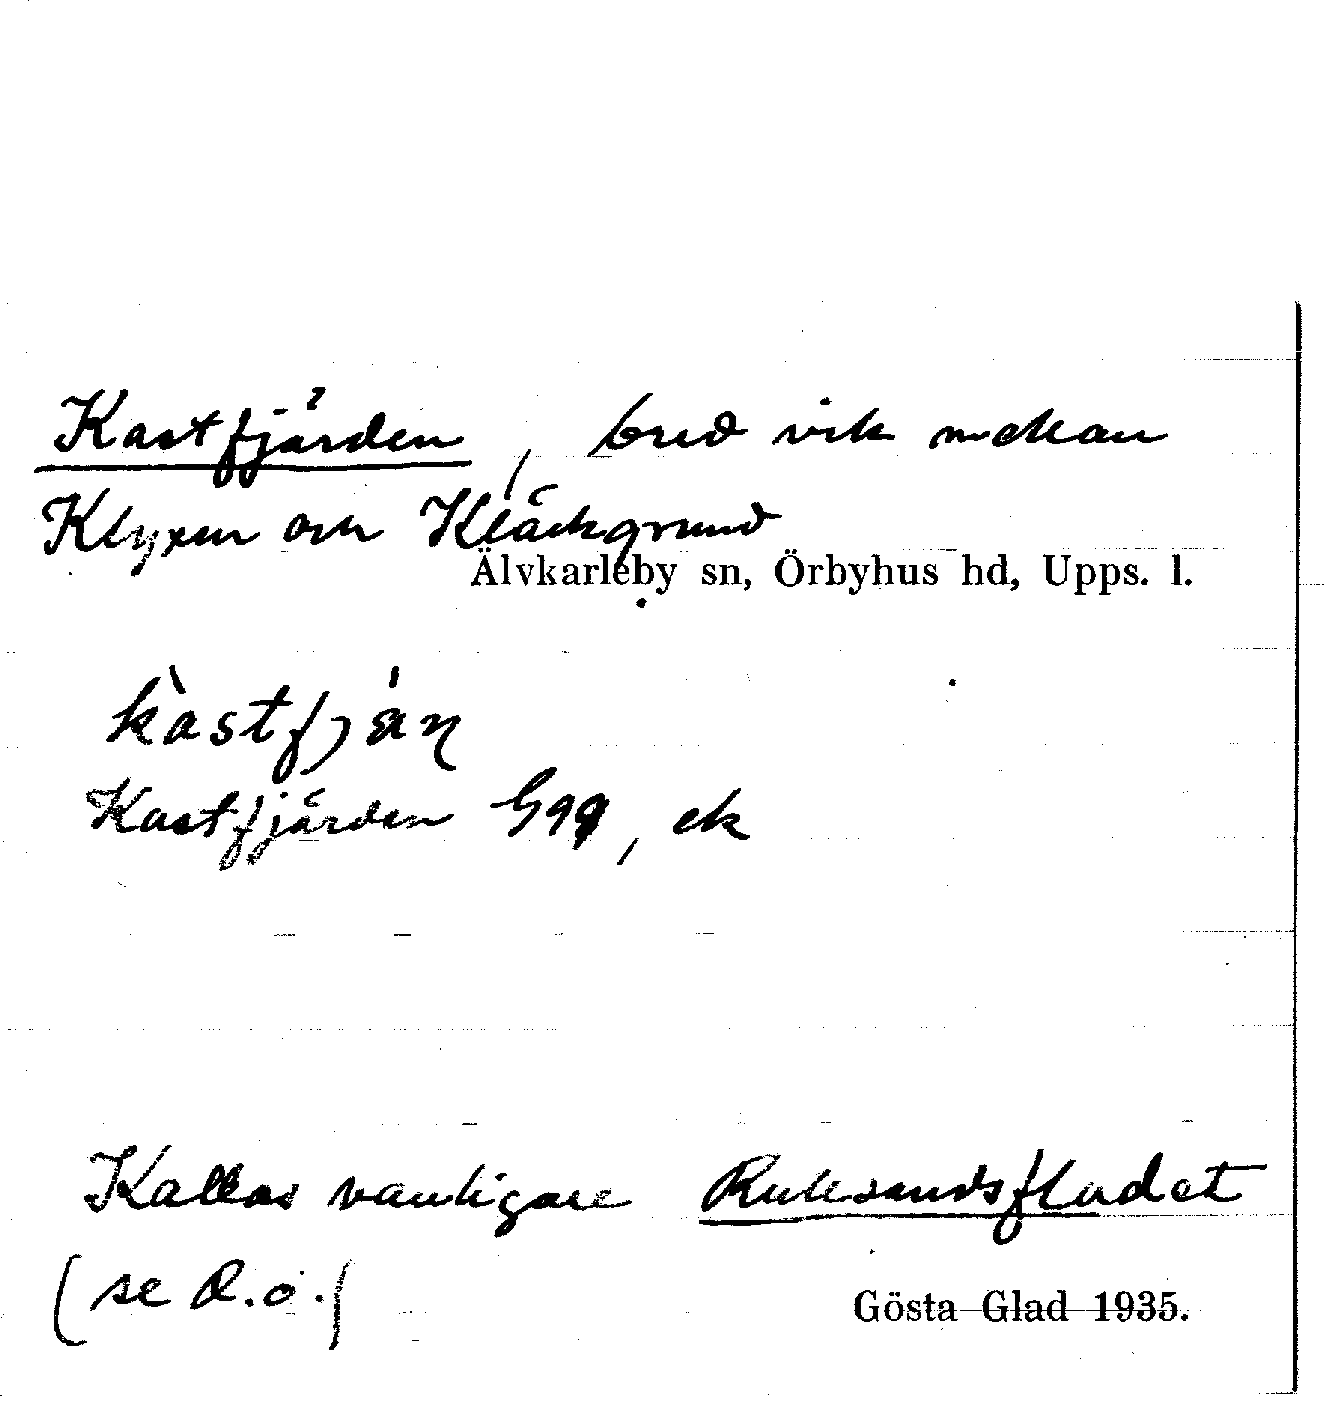 Kastfjärden, bred vik mellan
Klyxen och Kläckgrund
Älvkarleby sn, Örbyhus hd, Upps. l.
kastfjäɳ
Kastfjärden G99, ek
Kallas vanligare Ruksandsfladet
(se d.o.)
Gösta Glad 1935.